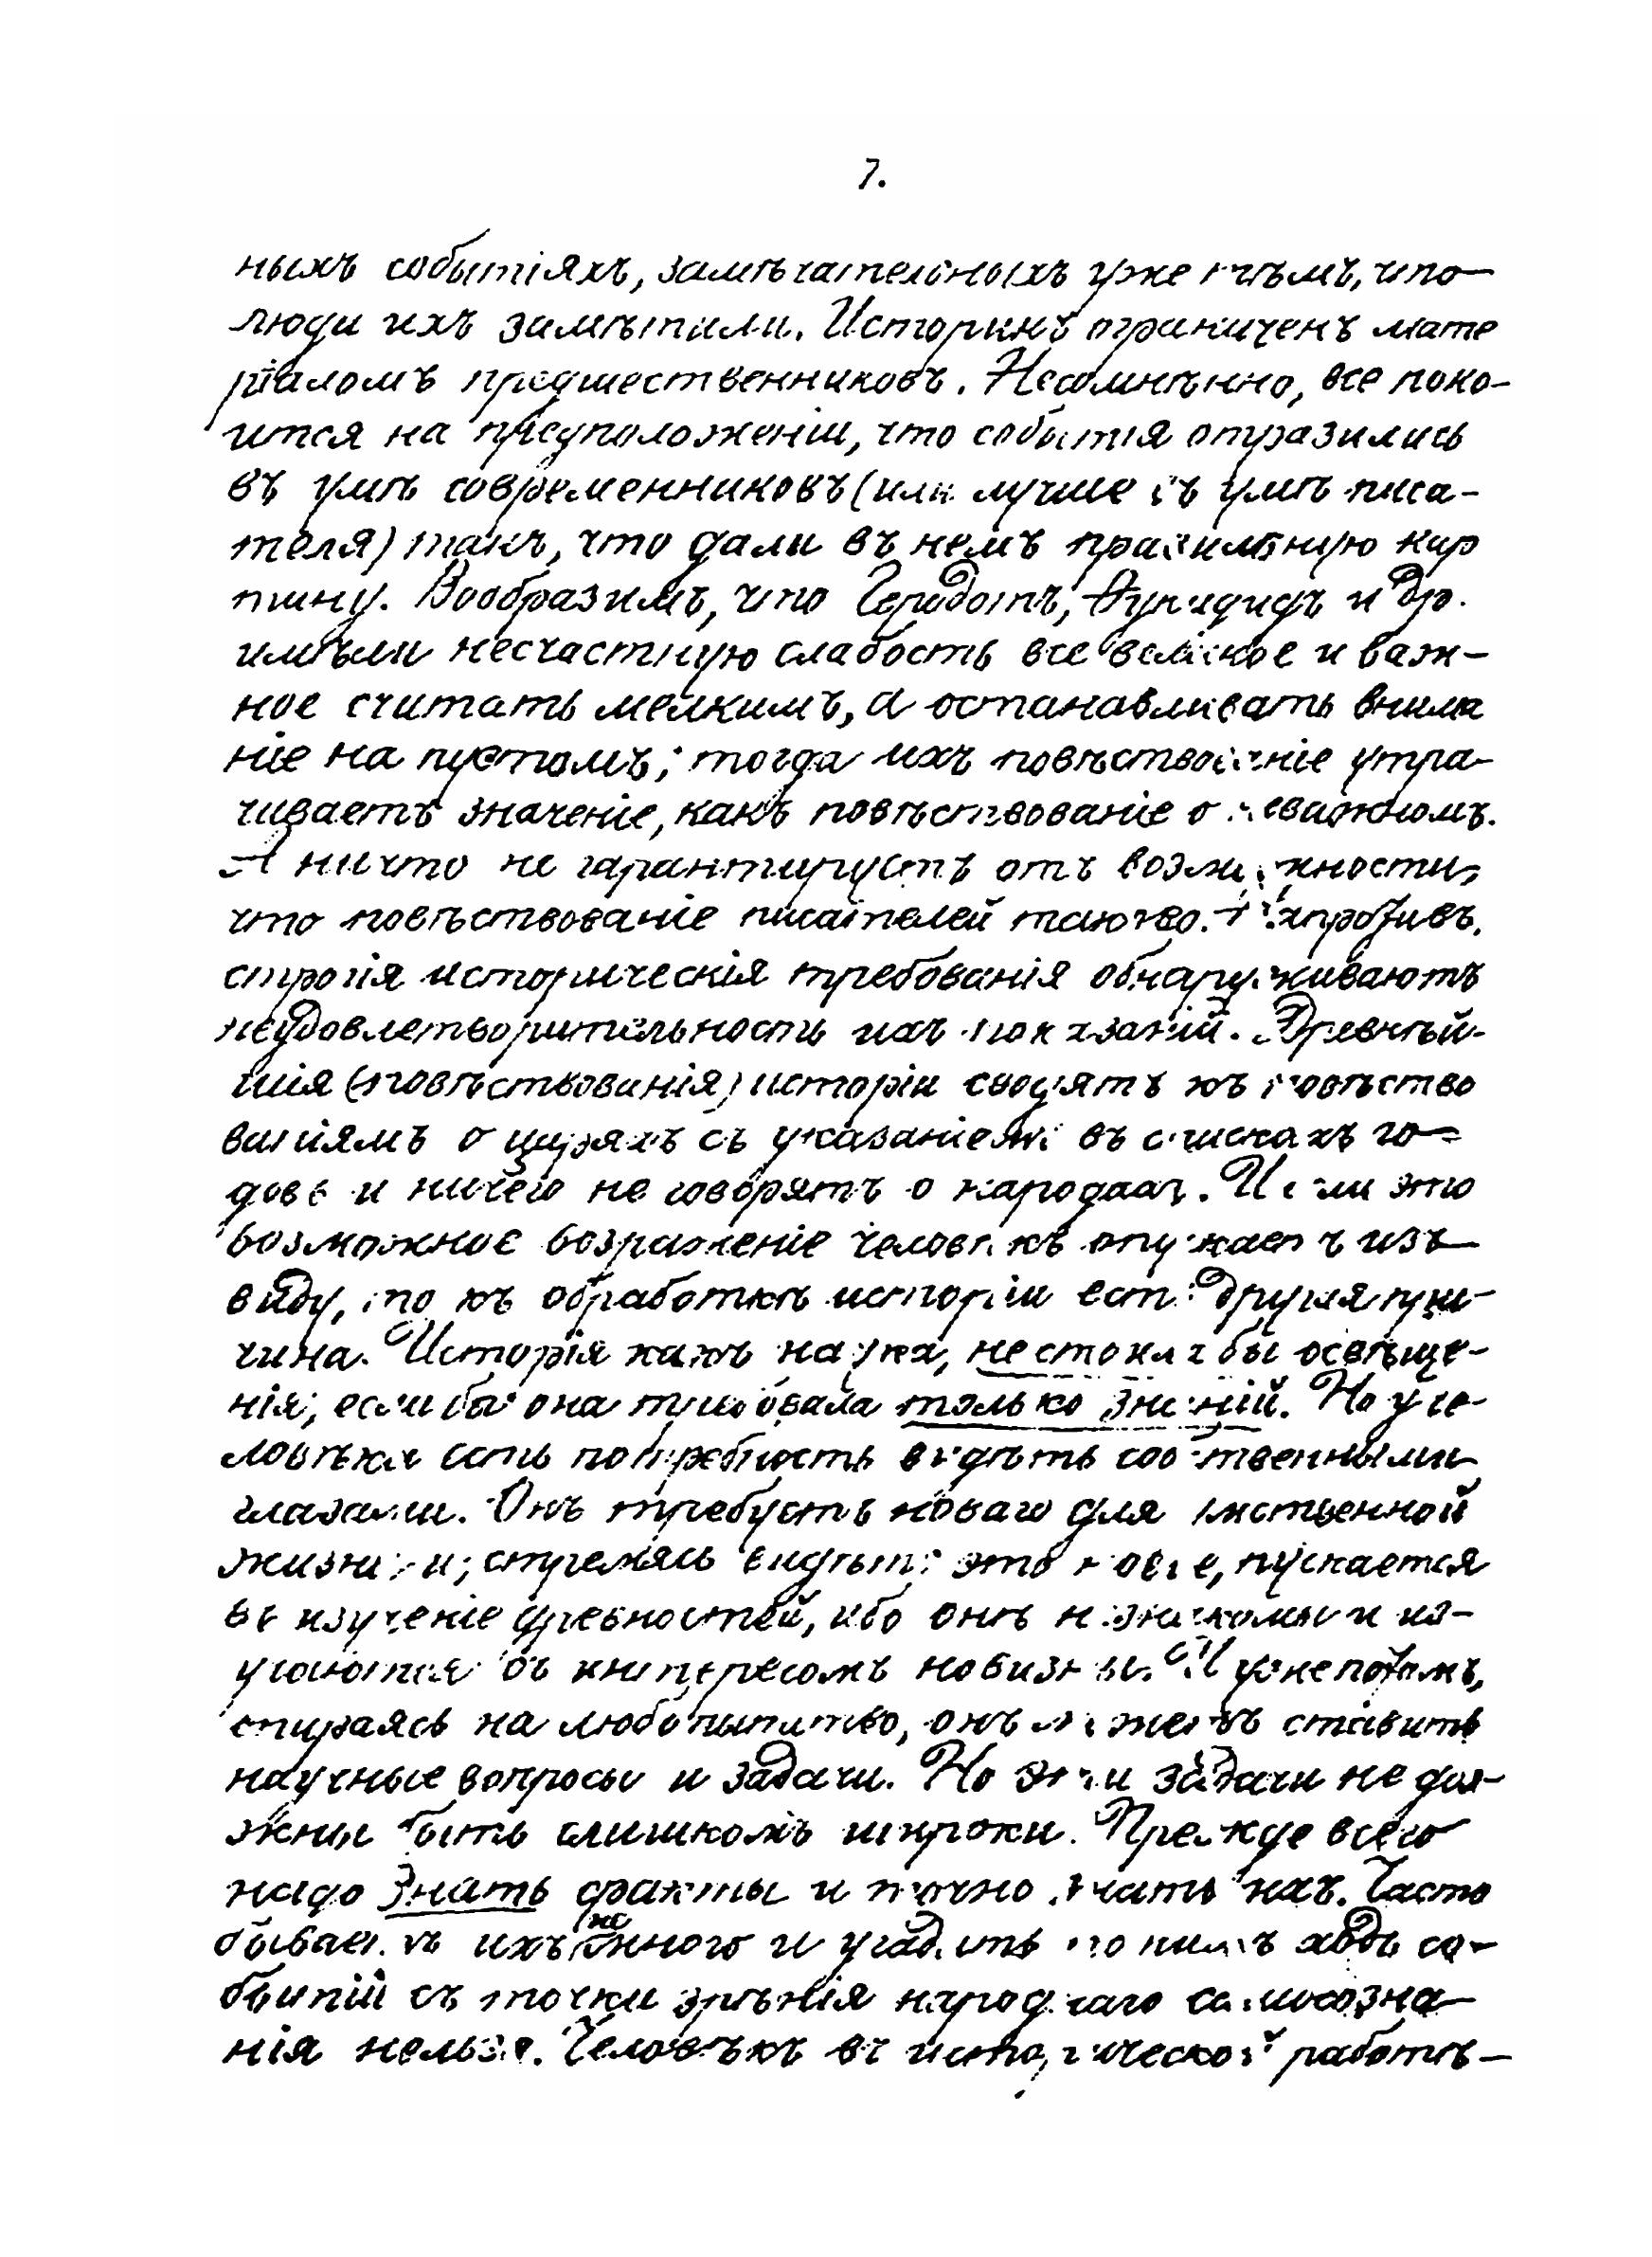 7.
ныхъ событіяхъ, замѣчательныхъ уже тѣмъ, что
люди ихъ замѣтили. Историкъ ограниченъ мате
ріаломъ предшественниковъ. Несомнѣнно, все поко-
ится на предположеніи, что событія отразились
въ умѣ современниковъ (или лучше въ умѣ писа-
теля) такъ, что дали въ немъ правильную кар
тину. Вообразимъ, что Геродотъ, Ѳукидидъ и др.
имѣли несчастную слабость все великое и важ-
ное считать мелкимъ, а останавливать внима
ніе на пустомъ; тогда ихъ повѣствованіе утра-
чиваетъ значеніе, какъ повѣствованіе о неважномъ.
А ничто не гарантируетъ отъ возможности,
что повѣствованіе писателей таково. Напротивъ,
строгія историческія требованія обнаруживаютъ
неудовлетворительность ихъ показаній. Древнѣй-
шія (повѣствованія) исторіи сводятъ къ повѣство
ваніямъ о царяхъ съ указаніемъ въ спискахъ го-
довъ и ничего не говорятъ о народахъ. Если это
возможное возраженіе человѣкъ опускаетъ изъ
виду, то къ обработкѣ исторіи есть другая при-
чина. Исторія какъ наука, не стоила бы освѣще-
нія, если бы она требовала только знаній. Но у че-
ловѣка есть потребность видѣть собственными
глазами. Онъ требуетъ новаго для умственной
жизни и, стремясь видѣть это новое, пускается
въ изученіе древностей, ибо онѣ незнакомы и из-
учаются съ интересомъ новизны. И уже потомъ,
опираясь на любопытство, онъ можетъ ставить
научные вопросы и задачи. Но эти задачи не дол-
жны быть слишкомъ широки. Прежде всего
надо знать факты и точно знать ихъ. Часто
бываетъ ихъ не много и угадать по нимъ ходъ со-
бытій съ точки зрѣнія народнаго самосозна-
нія нельзя. Человѣкъ въ исторической работѣ-